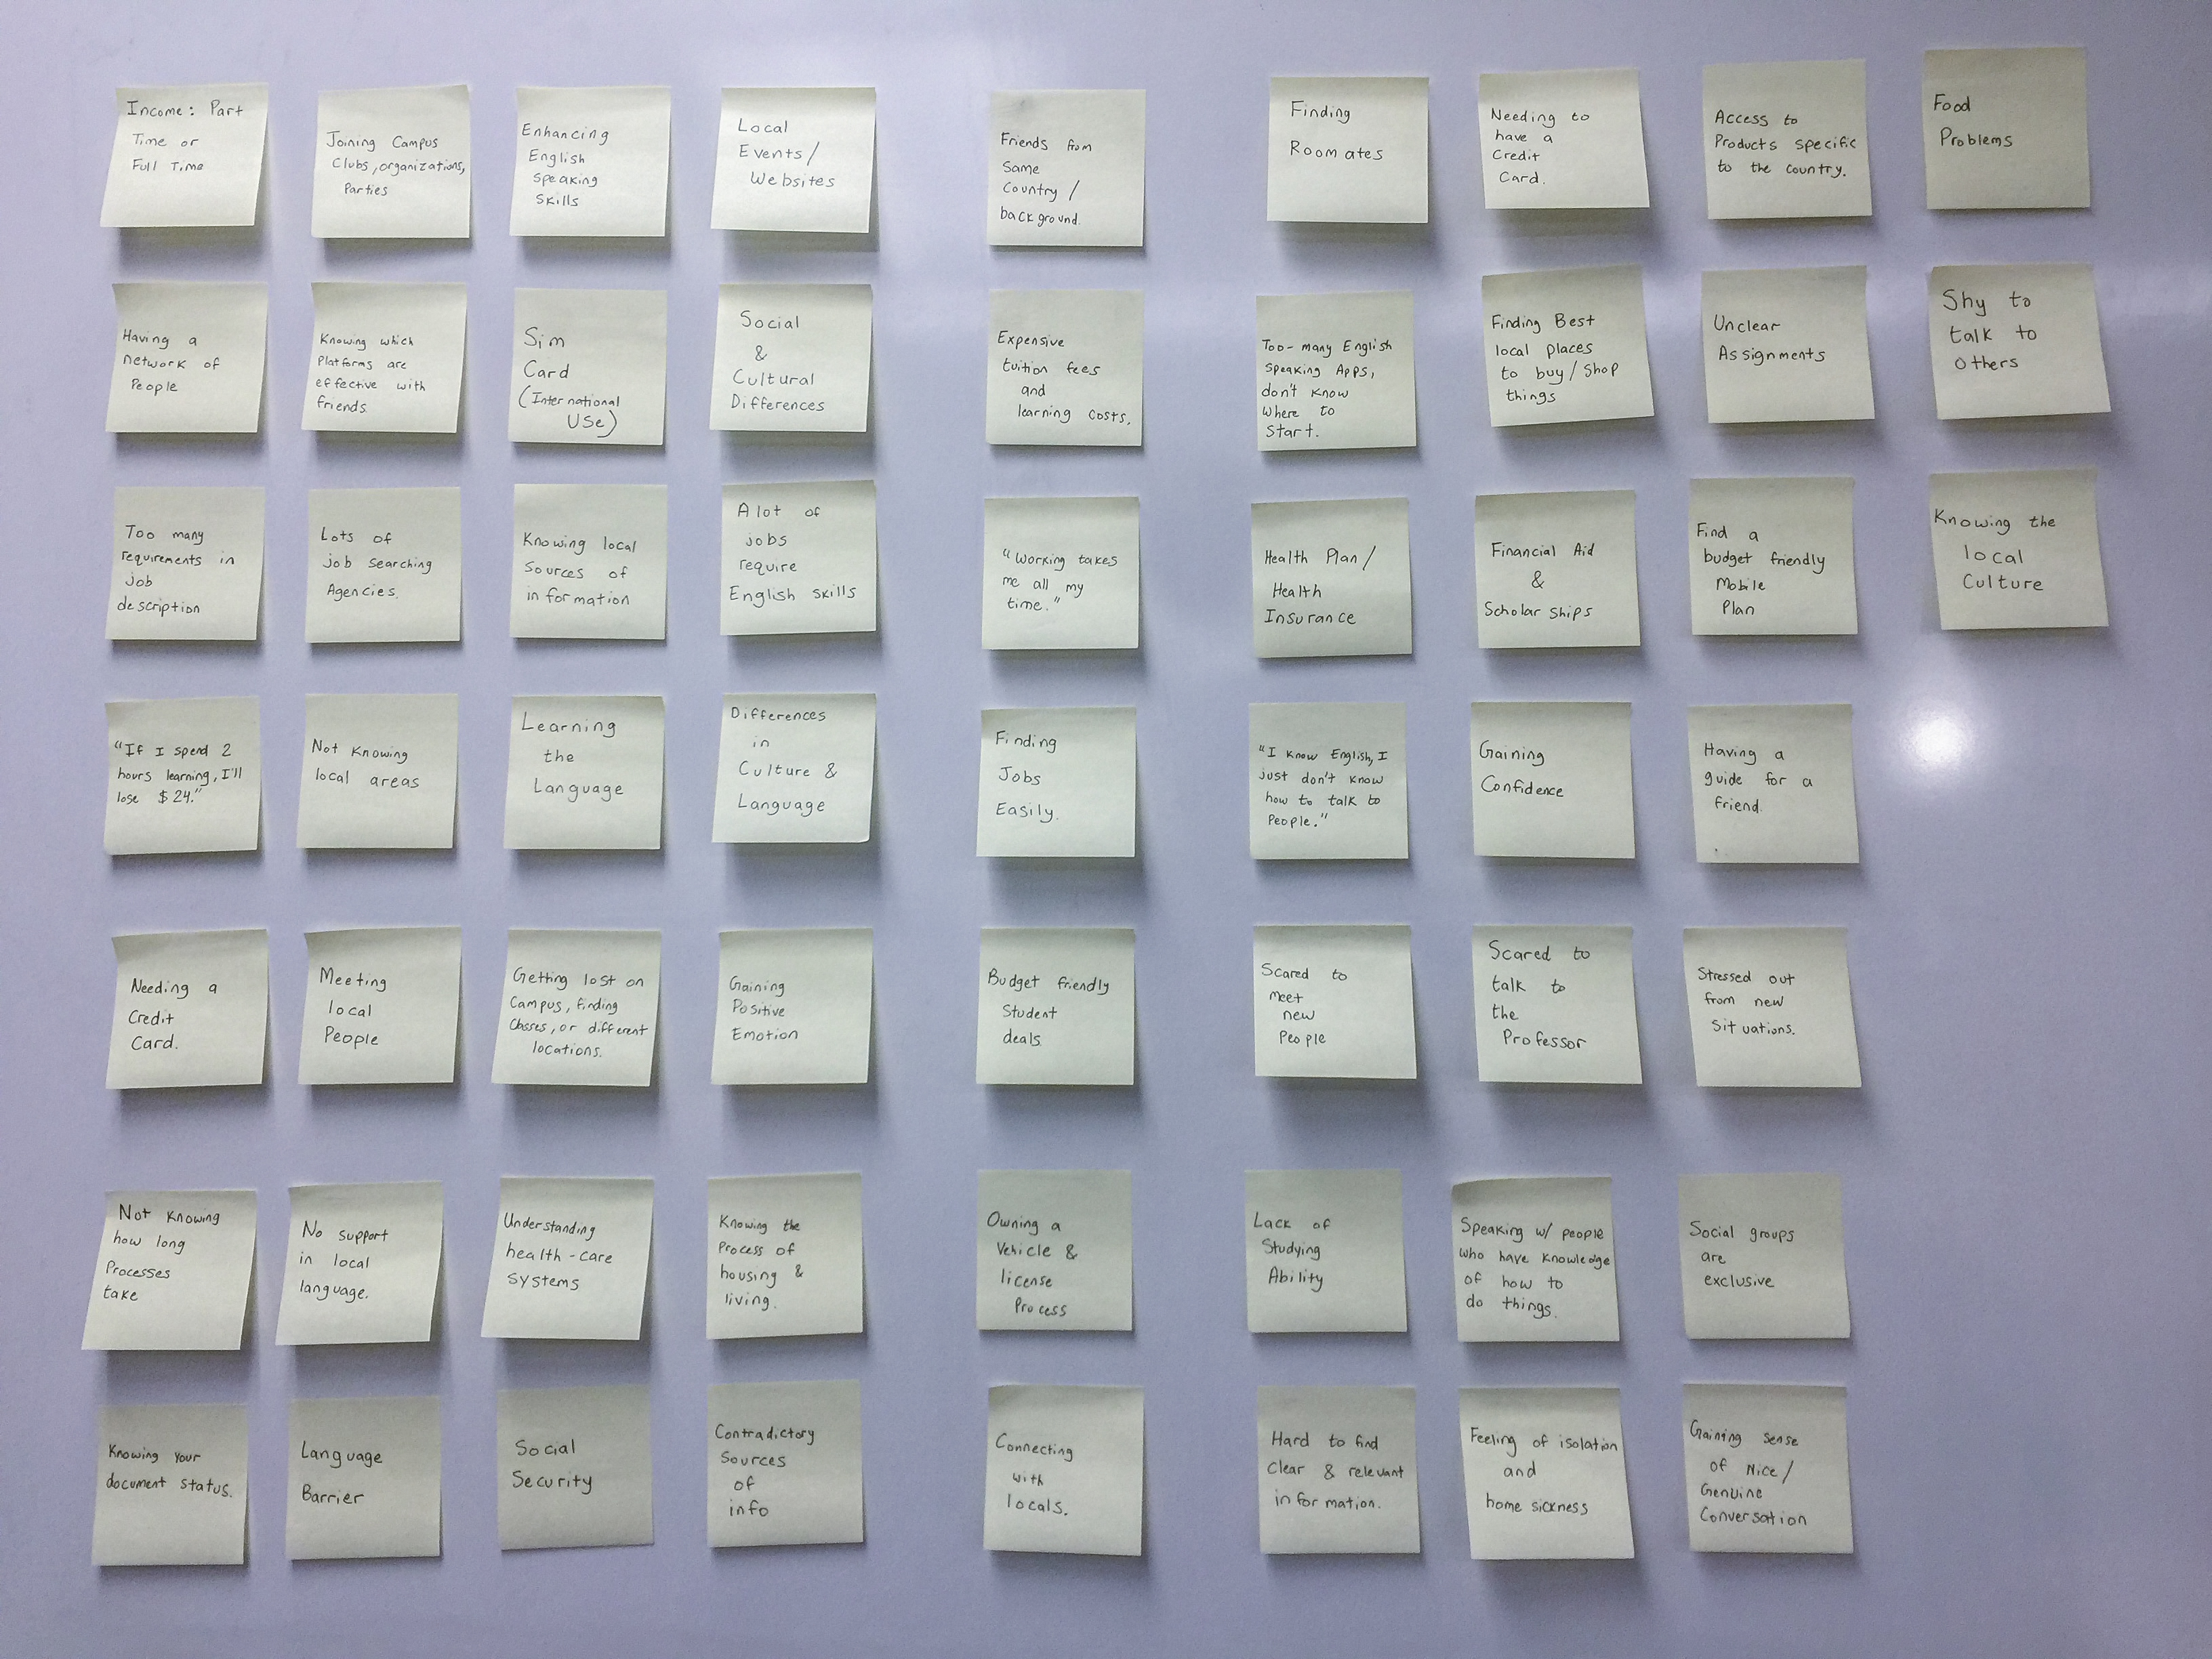 Income: Part
Time or
Full Time
Joining Campus
Clubs, organizations,
Parties
Enhancing
English
Speaking
Skills
Local
Events/
Websites
Friends from
Same
Country /
background.
Finding
Roomates
Needing to
have a
Credit
Card.
Access to
Products specific
to the country.
Food
Problems
Having a
network of
People
Knowing which
Platforms are
effective with
friends.
Sim
Card
(International
USe)
Social
&
Cultural
Differences
Expensive
tuition fees
and
learning costs,
Too-many English
Speaking Apps,
don't know
where to
Start.
Finding Best
local places
to buy/shop
things
Unclear
Assignments
Shy to
talk to
Others
Too many
requirements in
job
description
Lots of
job searching
Agencies.
Knowing local
Sources of
information
A lot of
jobs
require
English skills
"Working takes
me all my
time."
Health Plan/
Health
Insurance
Financial Aid
&
Scholarships
Find a
budget friendly
Mobile
Plan
Knowing the
local
Culture
"If I spend 2
hours learning, I'll
lose $24."
Not Knowing
local areas
Learning
the
Language
Differences
in
Culture &
Language
Finding
Jobs
Easily.
"I know English, I
just don't know
how to talk to
People."
Gaining
Confidence
Having a
guide for a
friend.
Needing a
Credit
Card.
Meeting
local
People
Getting lost on
Campus, finding
Classes, or different
locations.
Gaining
Positive
Emotion
Budget friendly
Student
deals.
Scared to
meet
new
People
Scared to
talk to
the
Professor
Stressed out
from new
Situations.
Not Knowing
how long
Processes
take
No support
in local
language.
Understanding
health-care
Systems
Knowing the
Process of
housing &
living.
Owning a
Vehicle &
license
Process
Lack of
Studying
Ability
Speaking w/ people
who have knowledge
of how to
do things.
Social groups
are
exclusive
Knowing your
document status.
Language
Barrier
Social
Security
Contradictory
Sources
of
info
Connecting
with
locals.
Hard to find
Clear & relevant
information.
Feeling of isolation
and
home sickness
Gaining sense
of Nice/
Genuine
Conversation